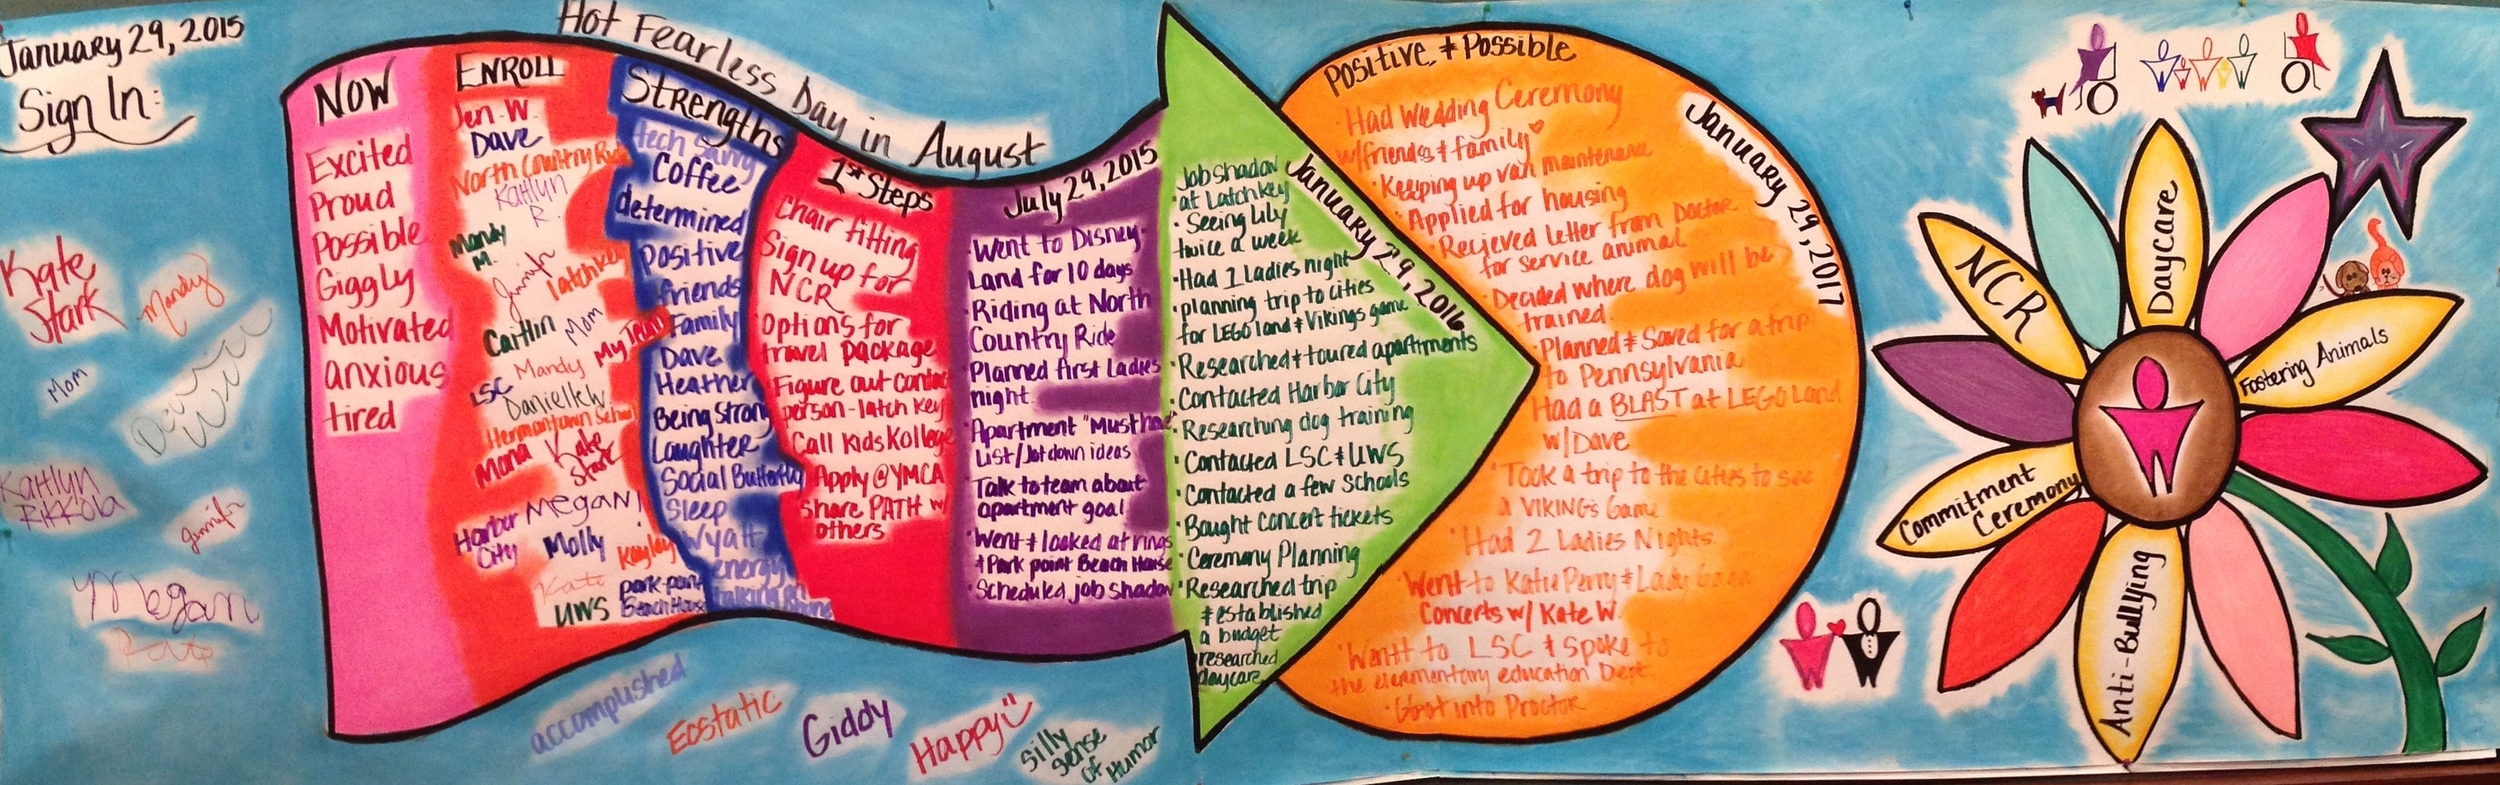 January 29, 2015
Sign In:
Kate
Stark
Mandy
Mom
Kaitlyn
Rikkola
Jennifer
Megan
Kate
Hot Fearless Day in August
Now
Excited
Proud
Possible
Giggly
Motivated
anxious
tired
Enroll
Jen. W.
Dave
North Country Ride
Kaitlyn
R.
Mandy
M.
Jennifer
latchkey
Caitlin
Mom
My Team
Mandy
LSC
Danielle W.
Hermantown School
Mana
Kate
Stark
Megan!
Harbor
City
Molly
Kayley
Kate
UWS
park point
Beach House
Strengths
tech savvy
Coffee
determined
positive
friends
Family
Dave
Heather
Being Strong
Laughter
Social Butterfly
Sleep
Wyatt
energy
talking on
phone
1st Steps
Chair fitting
Sign up for
NCR
Options for
travel package
Figure out contact
person-latch key
Call Kids Kollege
Apply @ YMCA
Share PATH w/
others
July 29, 2015
·Went to Disney
Land for 10 days
·Riding at North
Country Ride
·Planned first Ladies
night
·Apartment "Must have"
List/Jot down ideas
Talk to team about
apartment goal
·Went & looked at rings
& Park point Beach House
·Scheduled job shadow
January 29, 2016
Job shadow
at Latchkey
·Seeing Lily
twice a week
·Had 1 Ladies night
·planning trip to cities
for LEGO land & Vikings game
·Researched & toured apartments
·Contacted Harbor City
·Researching dog training
·Contacted LSC & UWS
·Contacted a few schools
·Bought concert tickets
·Ceremony Planning
·Researched trip
& established
a budget
researched
daycare
Positive & Possible
January 29, 2017
·Had Wedding Ceremony
w/friends & family
·Keeping up van maintenance
·Applied for housing
·Recieved letter from Doctor
for service animal
·Decided where dog will be
trained.
·Planned & Saved for a trip
to Pennsylvania
·Had a BLAST at LEGO Land
w/Dave
·Took a trip to the cities to see
a VIKINGS Game
·Had 2 Ladies Nights
·Went to Katie Perry & Lady Gaga
Concerts w/ Kate W.
·Wentt to LSC & Spoke to
the elementary education Dept.
into Proctor
accomplished
Ecstatic
Giddy
Happy
Silly
sense
of Humor
Daycare
NCR
Fostering Animals
Commitment
Ceremony
Anti-Bullying